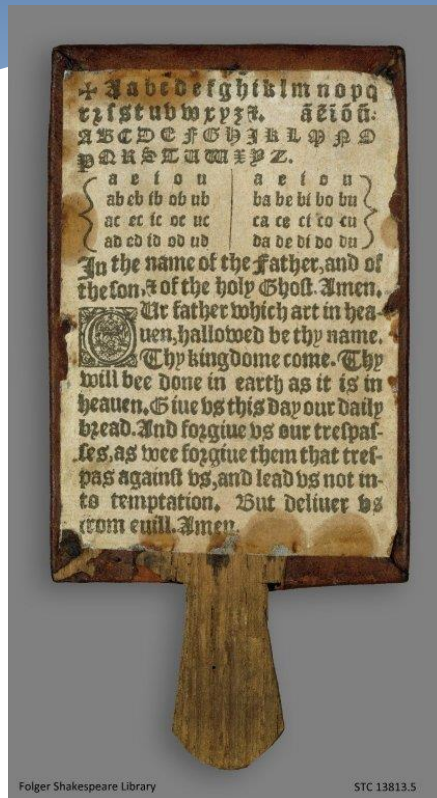 ✠ Aabcdefghiklmnopq
rꝛſstuvwxyz⁊. ãẽĩõũ:
ABCDEFGHIKLMNO
PQRSTUWXYZ.
a e i o u a e i o u
ab eb ib ob ub ba be bi bo bu
ac ec ic oc uc ca ce ci co cu
ad ed id od ud da de di do du
In the name of the Father, and of
the ſon, ⁊ of the holy Ghoſt. Amen.
OUr father which art in hea-
uen, hallowed be thy name.
Thy kingdome come. Thy
will bee done in earth as it is in
heauen. Giue vs this day our daily
bꝛead. And foꝛgiue vs our treſpaſ-
ſes, as wee foꝛgiue them that treſ-
pas againſt vs, and lead vs not in-
to temptation. But deliuer vs
from euill. Amen.
Folger Shakespeare Library STC 13813.5